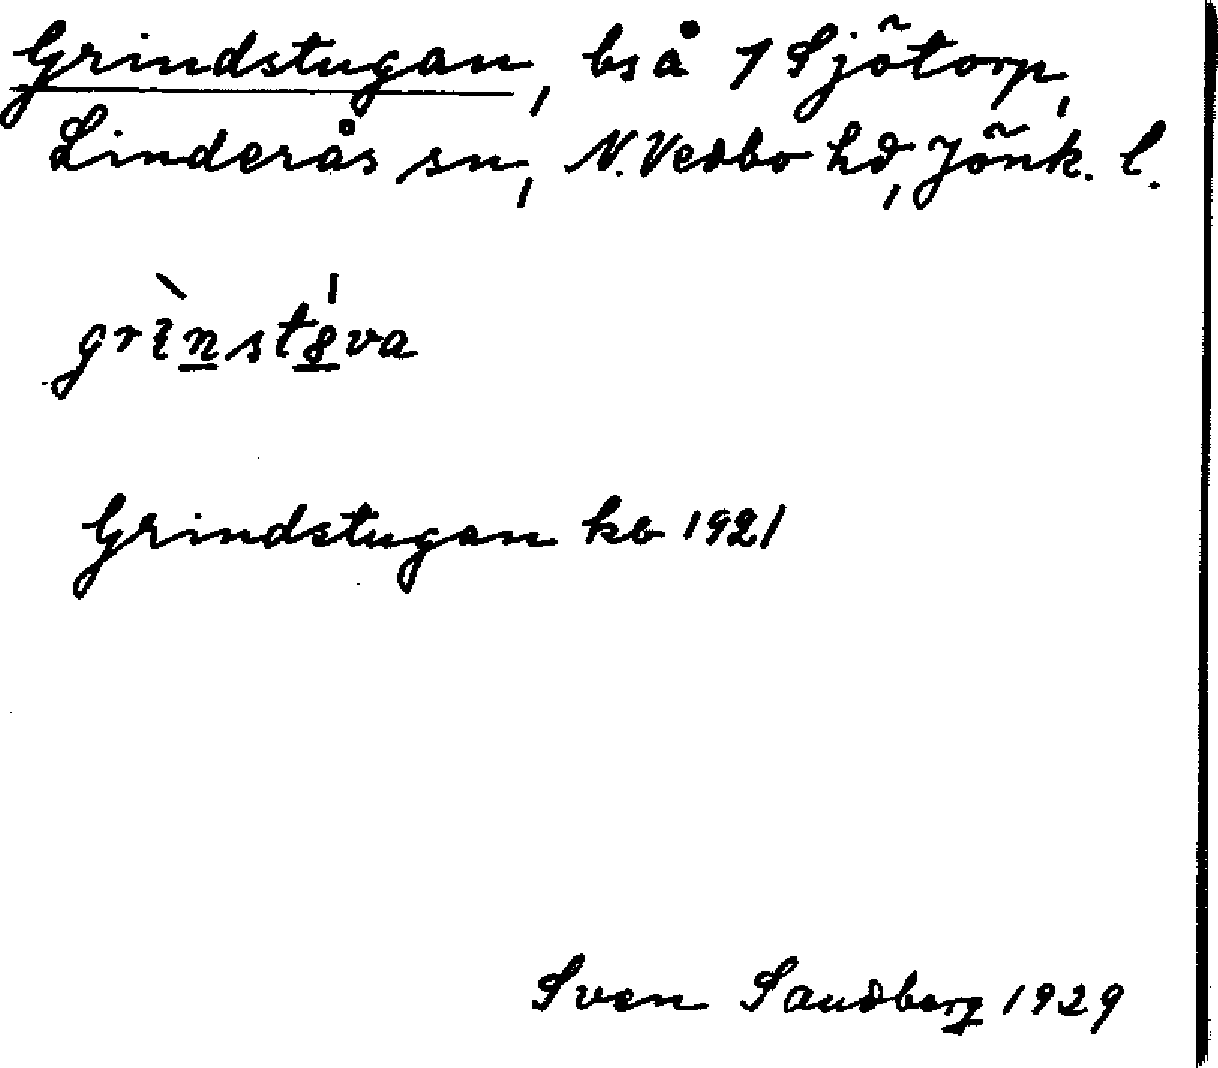 Grindstugan, bs å 7 Sjötorp,
Linderås sn, N. Vedbo hd, Jönk. l.
grìnst8va
Grindstugan kb 1921
Sven Sandberg 1929